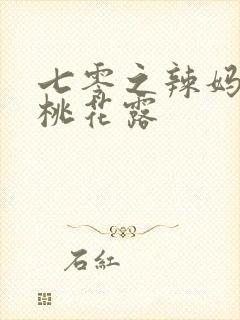 七零之辣妈
桃花露
石紅